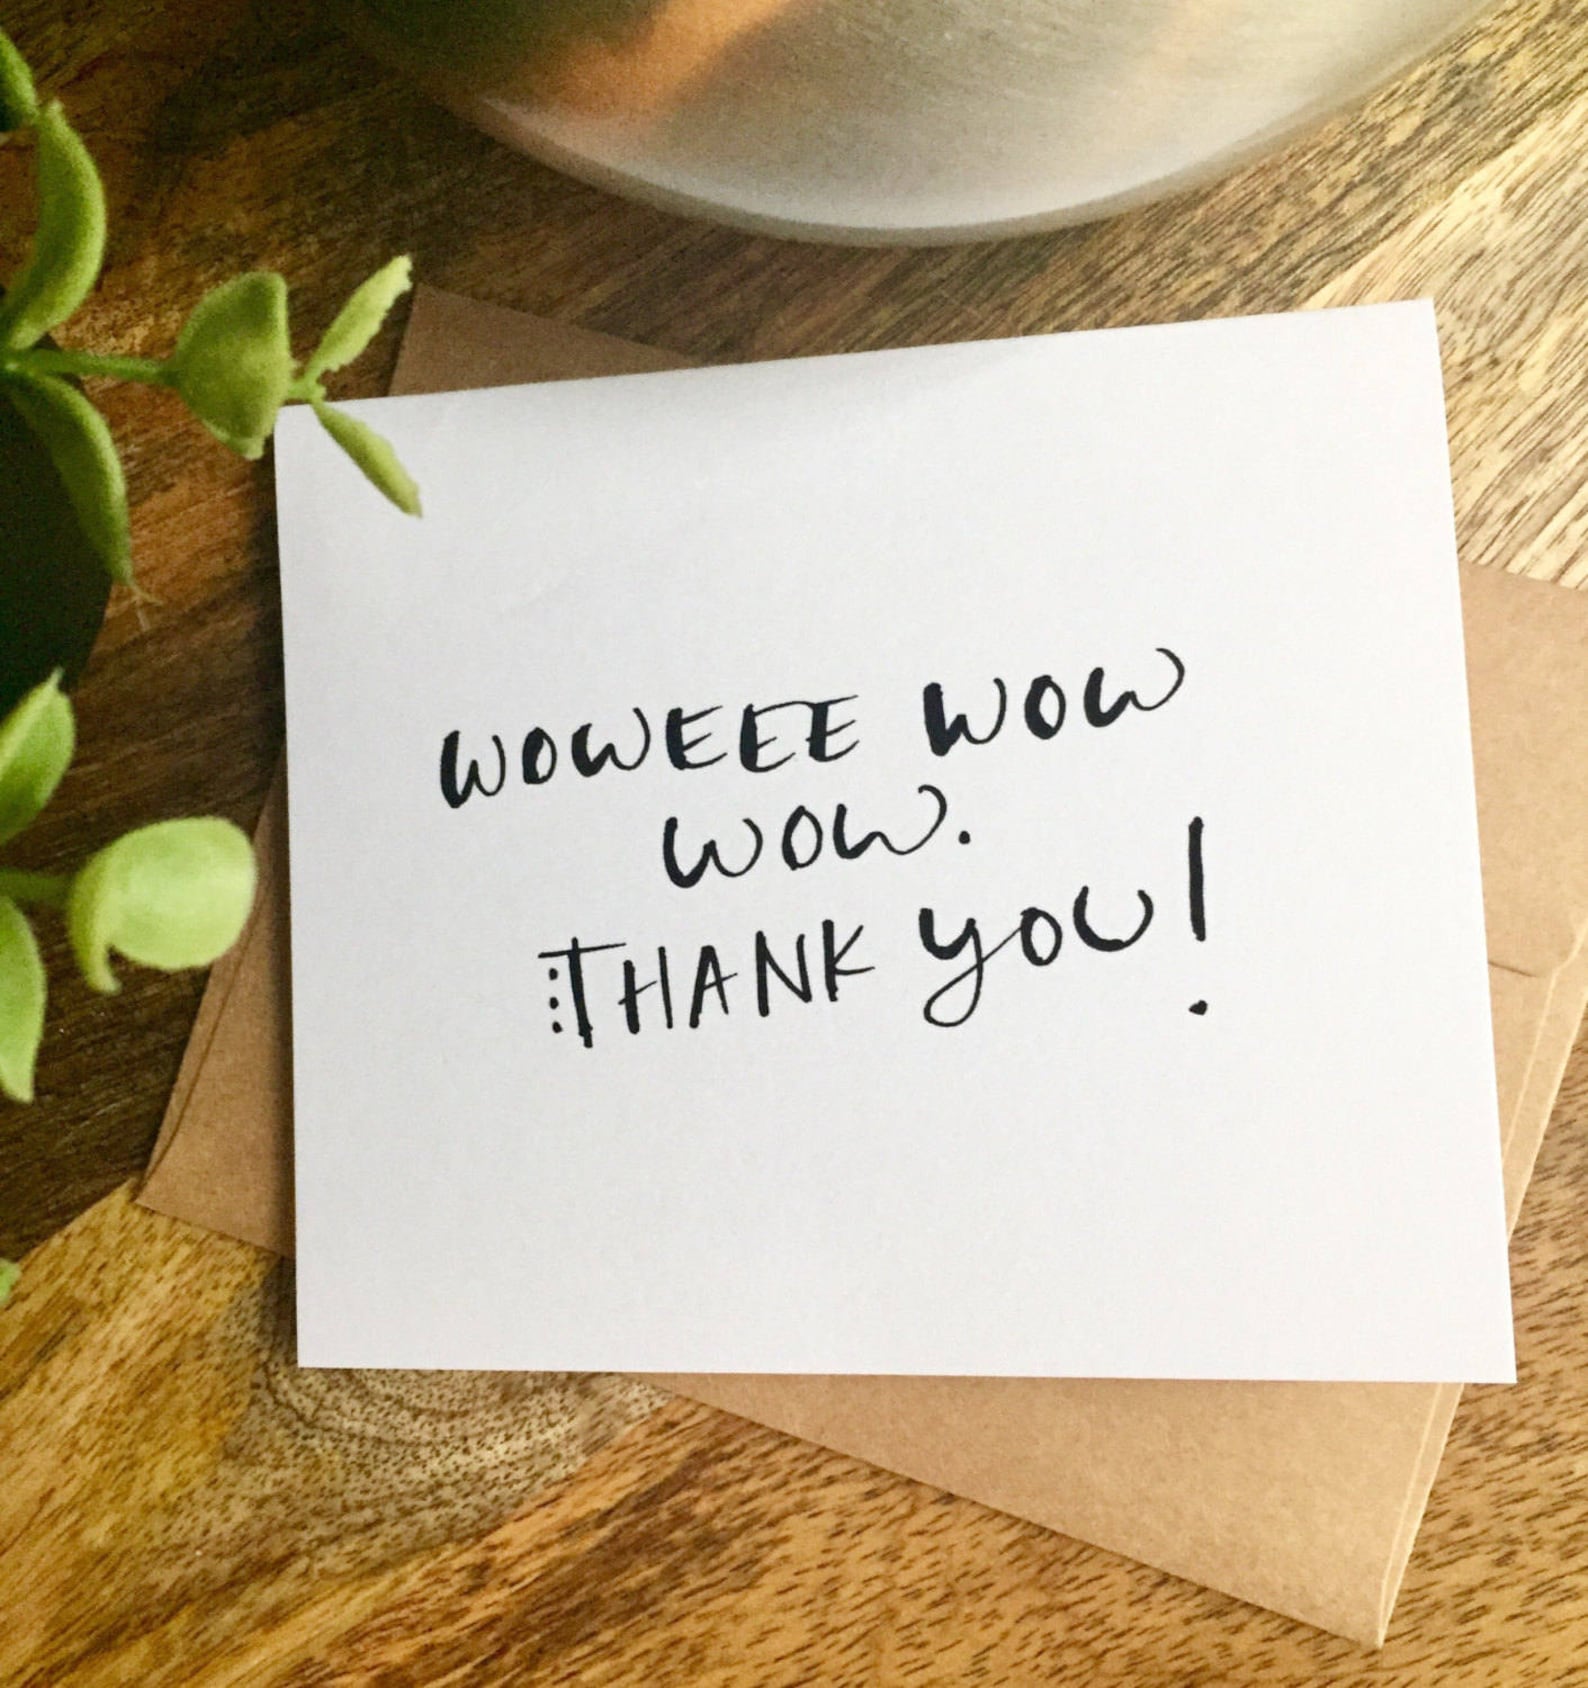 WOWEEE WOW
WOW.
THANK YOU!